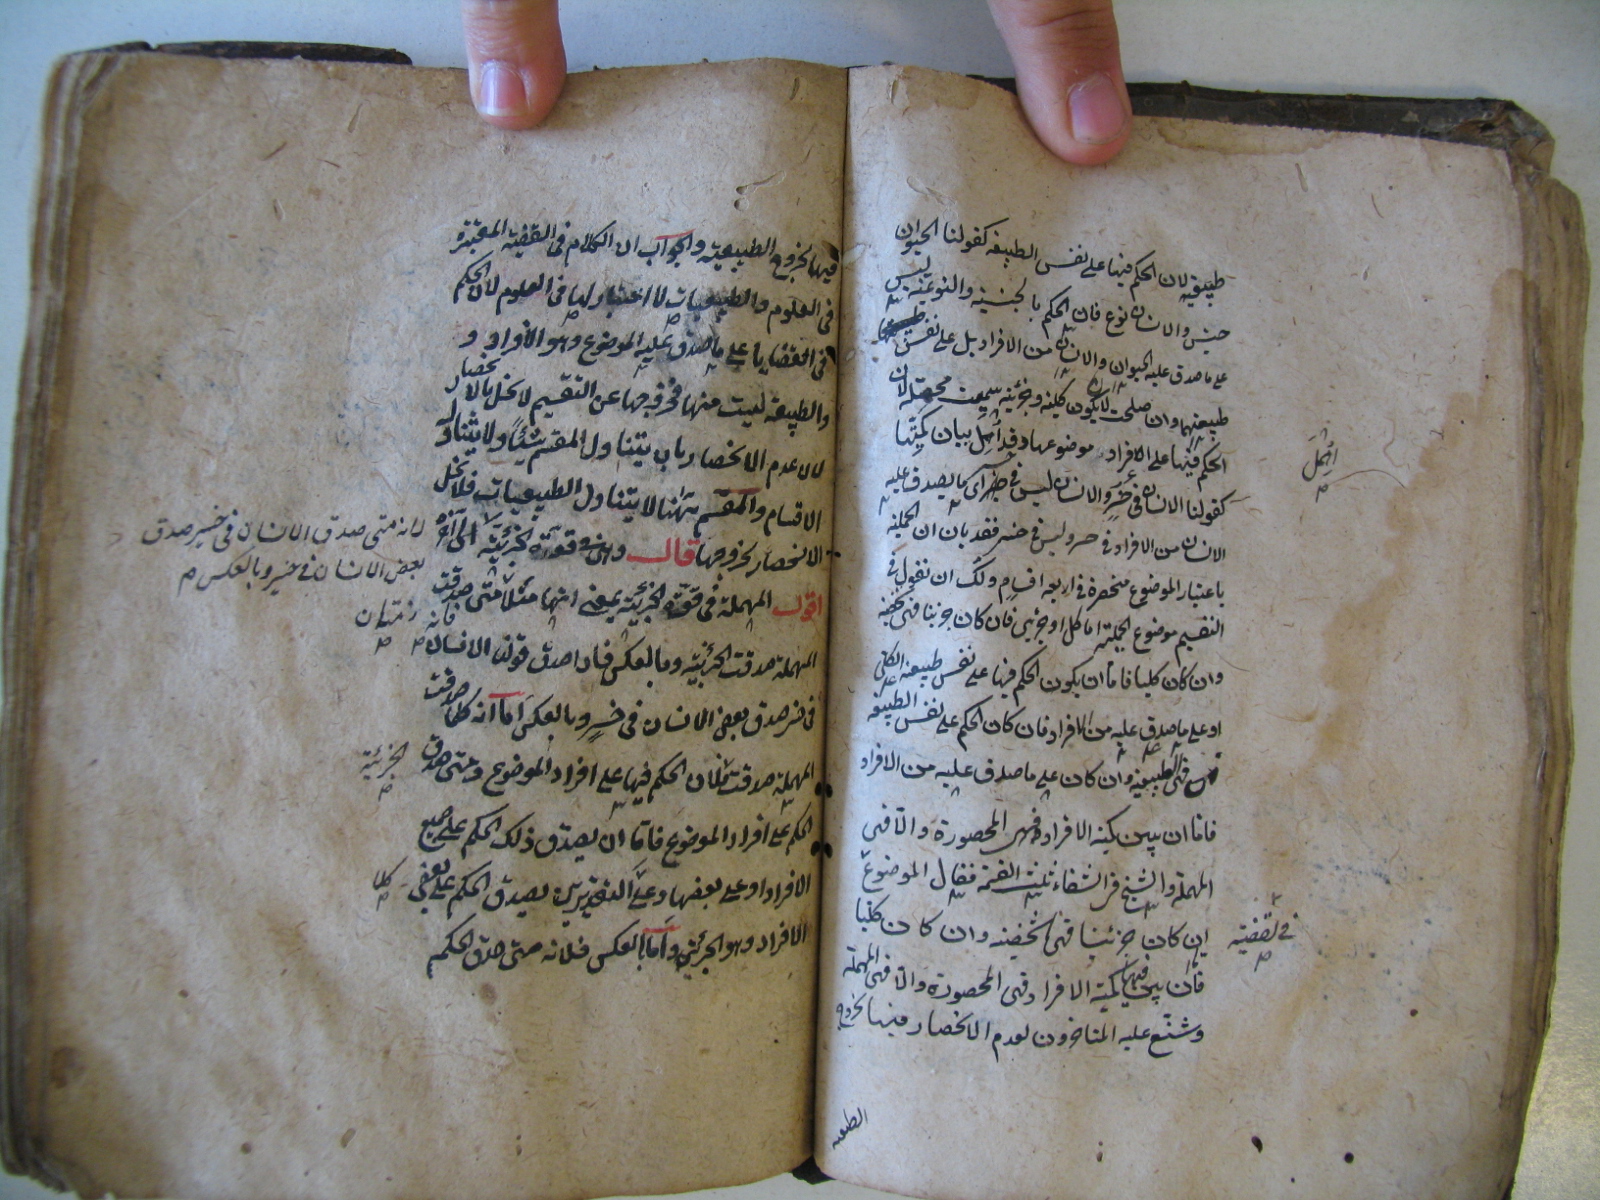 طبيعية لان الحكم فيها على نفس الطبيعة كقولنا الحيوان
جنس والانسان نوع فان الحكم بالجنسية والنوعية ليس
على ما صدق عليه الحيوان والانسان من الافراد بل على نفس
طبيعتهما وان صلحت لان يكون كلية وجزئية سميت مهملة لان
الحكم فيها على الافراد موضوعها وقد اهمل بيان كميتها
كقولنا الانسان في خسر والانسان ليس في خسر اى ما يصدق عليه
الانسان من الافراد في خسر وليس في خسر فقد بان ان الحملية
باعتبار الموضوع منحصرة في اربعة اقسام ولك ان نقول في
التقسيم موضوع الحملية اما كلى او جزئي فان كان جزئيا فهى شخصية
وان كان كليا فاما ان يكون الحكم فيها على نفس طبيعة الكلى
او على ما صدق عليه من الافراد فان كان الحكم على نفس الطبيعة
فهى الطبيعية وان كان على ما صدق عليه من الافراد
فاما ان يبين كمية الافراد فهى المحصورة والا فهى
المهملة والشيخ في الشفاء ثلث القسمة فقال الموضوع
ان كان جزئيا فهى الشخصية وان كان كليا
فان بين فيها كمية الافراد فهى المحصورة والا فهى المهملة
وشنع عليه المتاخرون لعدم الانحصار فيها لخروج
اهمل
في القضية
الطبيعية
فيها لخروج الطبيعية والجواب ان الكلام في القضية المعتبرة
في العلوم والطبيعيات لا اعتبار لها في العلوم لان الحكم
في القضايا على ما صدق عليه الموضوع وهو الافراد و
والطبيعة ليست منها فخروجها عن التقسيم لا يخل بالانحصار
لان عدم الانحصار بان يتناول المقسم شيئا ولا يتناوله
الاقسام والمقسم ههنا لا يتناول الطبيعيات فلا يخل
الانحصار لخروجها قال وهى في قوة الجزئية الى آخره
اقول المهملة في قوة الجزئية بمعنى انها مثلا متى صدقت
المهملة صدقت الجزئية وبالعكس فاذا صدق قولنا الانسان
في خسر صدق بعض الانسان في خسر وبالعكس اما انه كلما صدقت
المهملة صدقت فلان الحكم فيها على افراد الموضوع ومتى صدق
الحكم على افراد الموضوع فاما ان يصدق ذلك الحكم على جميع
الافراد او على بعضها وعلى التقديرين يصدق الحكم على بعض
الافراد وهو الجزئي واما بالعكس فلانه متى صدق الحكم
لانه متى صدق الانسان في خسر صدق
بعض الانسان في خسر وبالعكس
الجزئية
كلما